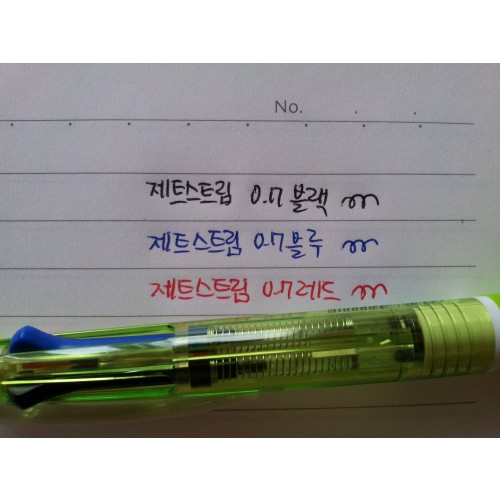 No.
제트스트림 0.7 블랙
제트스트림 0.7 블루
제트스트림 0.7 레드